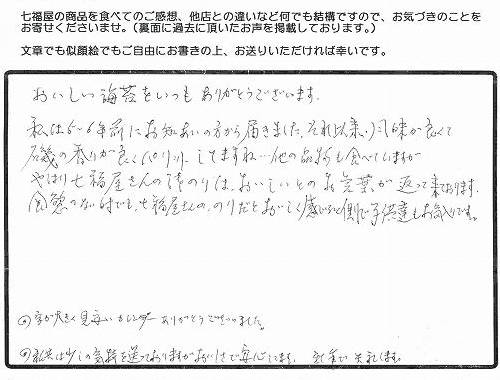 七福屋の商品を食べてのご感想、他店との違いなど何でも結構ですので、お気づきのことを
お寄せくださいませ。（裏面に過去に頂いたお声を掲載しております。）
文章でも似顔絵でもご自由にお書きの上、お送りいただければ幸いです。
おいしい海苔をいつもありがとうございます。
私は5〜6年前にお知りあいの方から届きました。それ以来、風味が良くて
磯の香りが良くパリッとしてますね…他の品物も食べていますが
やはり七福屋さんののりは、おいしいとのお言葉が返って来ております。
食慾のない時でも、七福屋さんの、のりだとおいしく感じると側で子供達もお気入りです。
◎字が大きく見安いカレンダーありがとうございました。
◎私共は少しの気持を送っておりますがおかげで安心してます。 乱筆で失礼します。